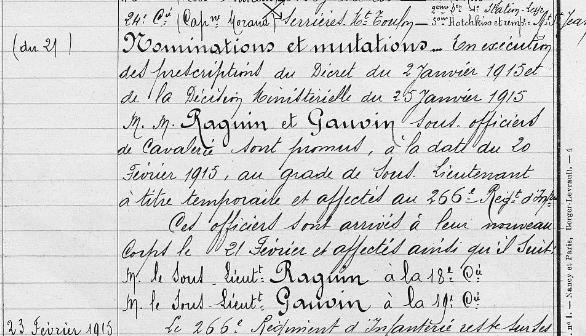 24e Cie (Capne Morand) Serrières Et Toulon
(du 21)
Nominations et mutations _ En exécution
des prescriptions du Décret du 2 Janvier 1915 et
de la Décision Ministérielle du 25 Janvier 1915
M. M. Raguin et Gauvin Sous-officiers
de Cavalerie sont promus, à la date du 20
Février 1915, au grade de Sous-Lieutenant
à titre temporaire et affectés au 266e Régt d'Infie
Ces officiers sont arrivés à leur nouveau
Corps le 21 Février et affectés ainsi qu'il suit:
M. le Sous-Lieutt Raguin à la 18e Cie
M. le Sous-Lieutt Gauvin à la 19e Cie
23 Février 1915 Le 266e Régiment d'Infanterie reste sur ses
Nancy et Paris, Berger-Levrault. — 4